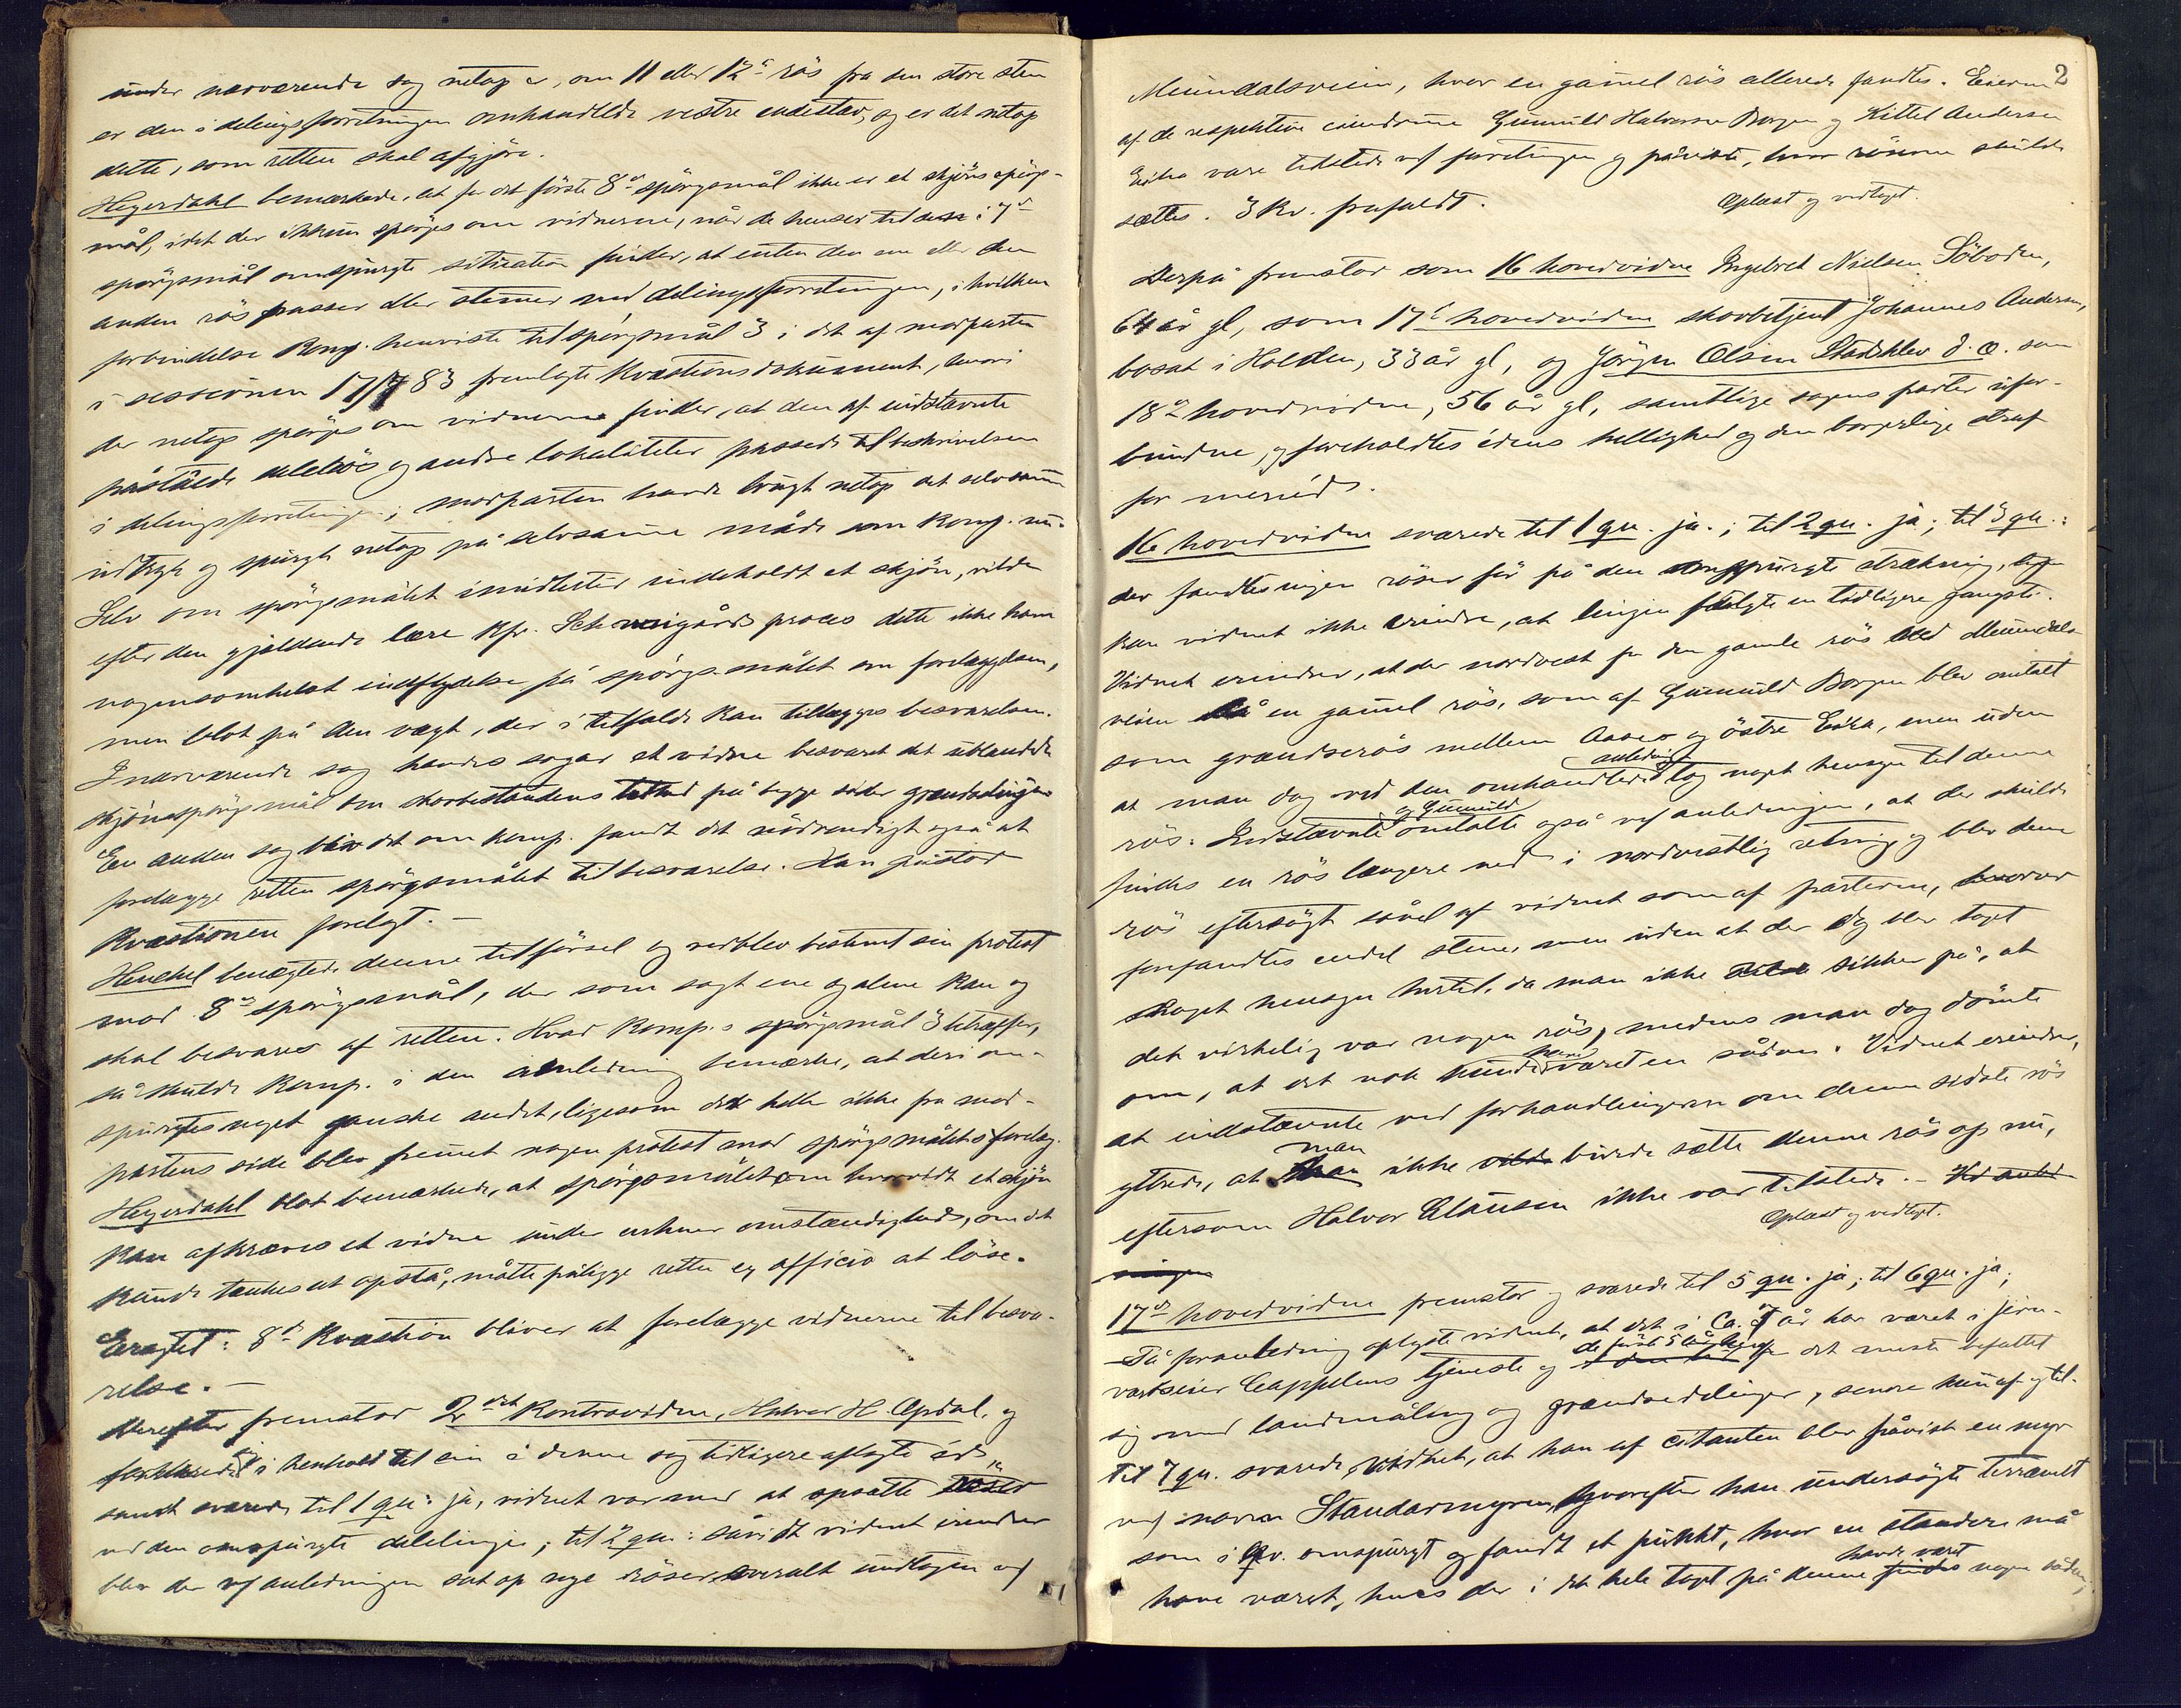 under nærværende sag netop er, om 11 eller 12te rös fra den store sten
er den i delingsforretningen omhandlede vestre endestav, og er det netop
dette, som retten skal afgjöre.
Heyerdahl bemærkede, at for det förste 8de spörgsmål ikke er et skjöns spörgs-
mål, idet der ikkun spörges om vidnerne, når de henser til den i 7de
spörgsmål omspurgte situation finder, at enten den ene eller den
anden rös passer eller stemmer med delingsforretningen, i hvilken
forbindelse komp. henviste til spörgsmål 3 i det af modparten
i sessionen 17/7 83 fremlagte kvæstionsdokument, hvori
der netop spörges om vidnerne finder, at den af indstævnte
påståede delelös og andre lokaliteter passede til beskrivelsen
i delingsforretningen; modparten havde brugt netop det selvsamme
udtryk og spurgt netop på selvsamme måde som komp. nu.
Selv om spörgsmålet imidlertid indeholdt et skjön, vilde
efter den gjældende lære kfr. Schweigårds proces dette ikke have
nogensomhelst indflydelse på spörgsmålet om forelæggelsen,
men blot på den vægt, der i tilfælde kan tillægges besvarelsen.
I nærværende sag havdes sogar et vidne besvaret det
skjönsspörgsmål om skovbestandens tæthed på begge sider grændselinjen
En anden sag blev det om komp. fandt det nödvendigt også at
forelægge retten spörgsmålet til besvarelse. Han påstod
kvæstionen forelagt. –
Henchel benægtede denne tilförsel og vedblev bestemt sin protest
mod 8de spörgsmål, der som sagt ene og alene kan og
skal besvares af retten. Hvad komp.s spörgsmål 3 betræffer,
så skulde komp. i den anledning bemærke, at deri om-
spurgtes noget ganske andet, ligesom det heller ikke fra mod-
partens side blev fremmet nogen protest mod spörgsmålets forelæg.
Heyerdahl blot bemærkede, at spörgsmålet om hvorvidt et skjön
kan afkræves et vidne under enhver omstændighed, om det
kunde tænkes at opstå, måtte påligge retten ex officio at löse.
Eragtet: 8de kvæstion bliver at forelægge vidnerne til besva-
relse. –
Derefter fremstod 2det kontravidne, Halvor H. Opdal, og
i henhold til sin i denne sag tidligere aflagte ed,
samt svarede til 1 qu: ja, vidnet var med at opsatte röser
ved den omspurgte delelinje; til 2 qu: såvidt vidnet erindrer
blev der ved anledningen sat op nye röser overalt undtagen ved
2
Meiendalsveien, hvor en gammel rös allerede fandtes. Eierne
af de respektive eiendomme Gunnuld Halvorsen Borgen og Kittel Andersen
Eika vare tilstede ved forretningen og påviste, hvor röserne skulde
sættes. 3 kv. frafaldt.
Oplæst og vedtaget.
Derpå fremstod som 16 hovedvidne Ingebret Nielsen Söboden,
64 år gl, som 17de hovedvidne skovbetjent Johannes Andersen,
bosat i Holden, 33 år gl, og Jörgen Olsen Stadsklev d. æ. som
18de hovedvidne, 56 år gl, samtlige sagens parter ufor-
bundne, og foreholdtes edens hellighed og den borgerlige straf
for mened.
16 hovedvidne svarede til 1 qu. ja.; til 2 qu. ja; til 3 qu.:
der fandtes ingen röser för på den omspurgte strækning,
kan vidnet ikke erindre, at linjen fulgte en tidligere gangsti.
Vidnet erindrer, at der nordvest for den gamle rös ved Meiendals-
veien lå en gammel rös, som af Gunnuld Borgen blev omtalt
som grændserös mellem Aases og östre Eika, men uden
at man dog ved den omhandlede anledning tog noget hensyn til denne
rös. Indstævnte og Gunnuld omtalte også ved anledningen, at der skulde
findes en rös længere ned i nordvestlig retning og blev denne
rös eftersögt såvel af vidnet som af parterne, hvorved
forefandtes endel stene, men uden at der dog blev taget
noget hensyn hertil, da man ikke sikker på, at
det virkelig var nogen rös, medens man dog dömte
om, at det nok kunde have været en sådan. Vidnet erindrer,
at indstævnte ved forhandlingerne om denne sidste rös
ytrede, at man ikke burde sætte denne rös op nu,
eftersom Halvor Clausen ikke var tilstede. – Ved anled-
ningen
Oplæst og vedtaget.
17de hovedvidne fremstod og svarede til 5 qu. ja; til 6 qu. ja;
På foranledning oplyste vidnet, at det i Ca. 7 år har været i jern-
værkseier Cappelens tjeneste og de först 5 år for det meste befattet
sig med landmåling og grændsedelinger, senere kun af og til.
Til 7 qu. svarede vidnet, at han af citanten blev påvist en myr
ved navn Standarmyren, hvorefter han undersögte terrænet
som i qv. omspurgt og fandt et punkt, hvor en standere må
have været, hvis der i det hele taget på denne havde været nogen sådan;